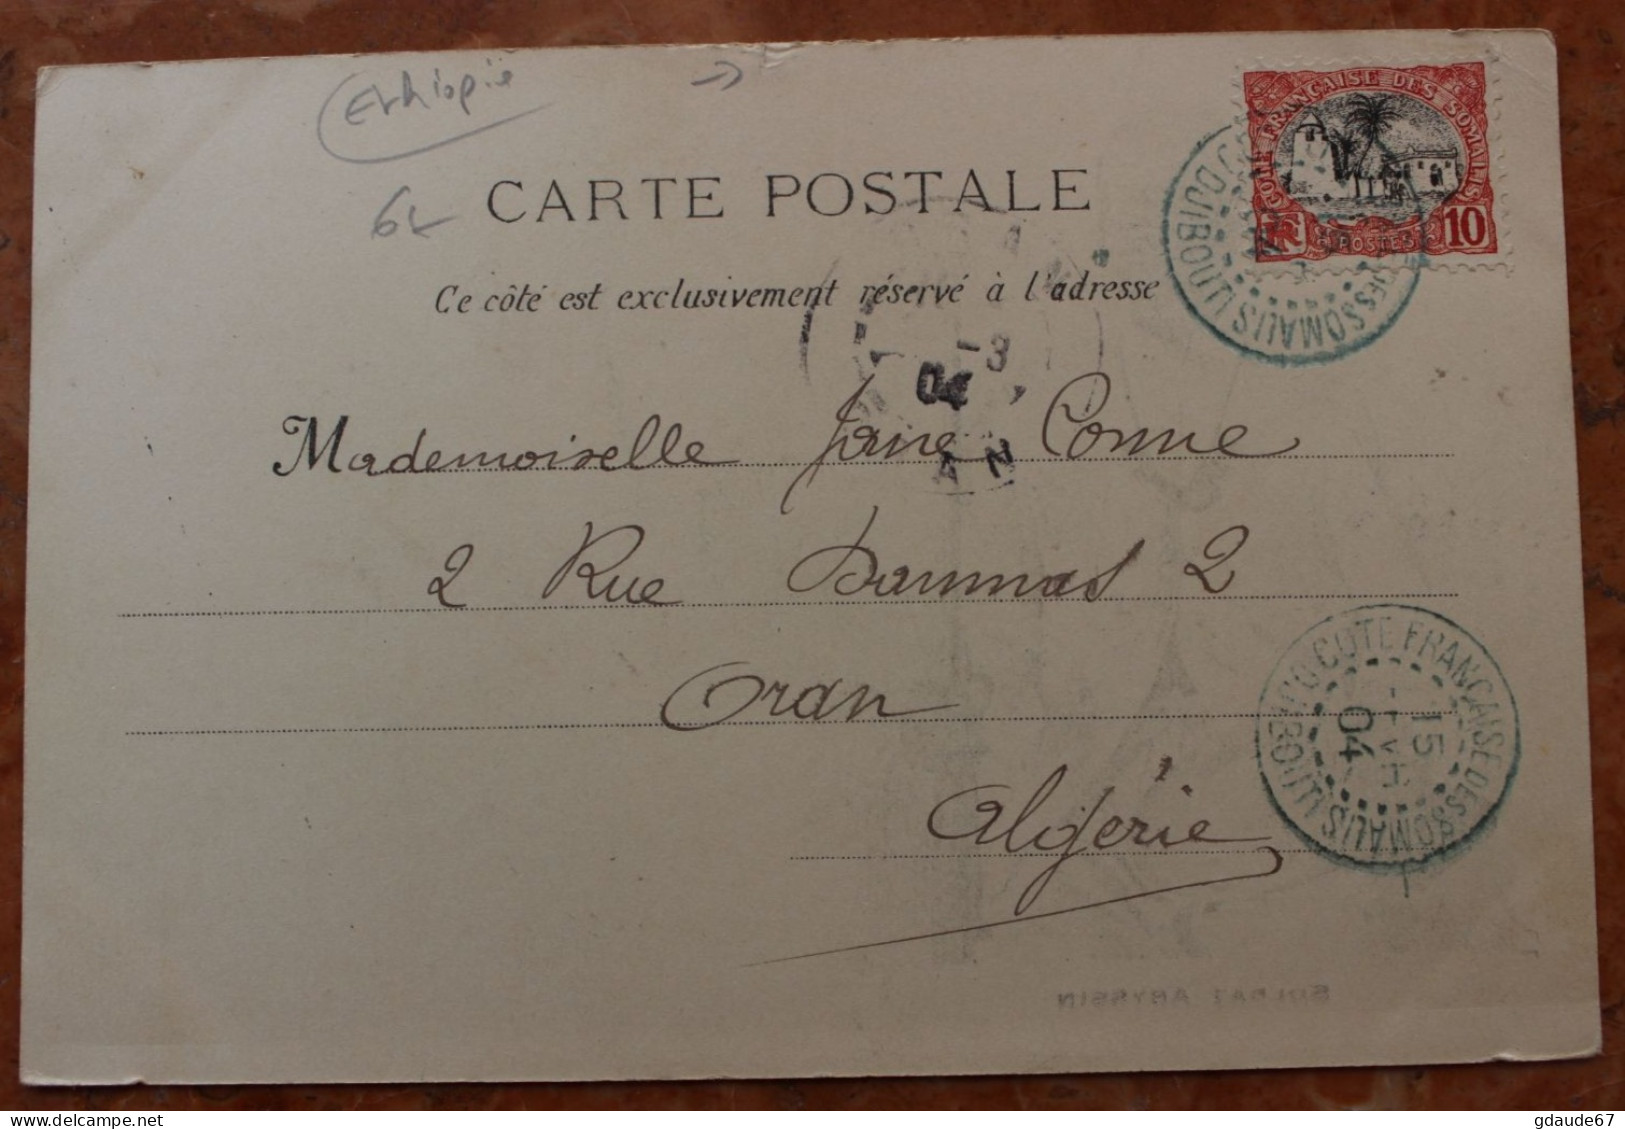 Ethiopie
CARTE POSTALE
Ce côté est exclusivement réservé à l'adresse
CÔTE FRANÇAISE DES SOMALIS
POSTES
10
DJIBOUTI
DES SOMALIS
04
AN
Mademoiselle Jane Conne
2 Rue Daumas 2
Oran
Algérie
CÔTE FRANÇAISE DES SOMALIS
15
04
DJIBOUTI
SOLDAT ABYSSIN
delcampe.net
gdaude67